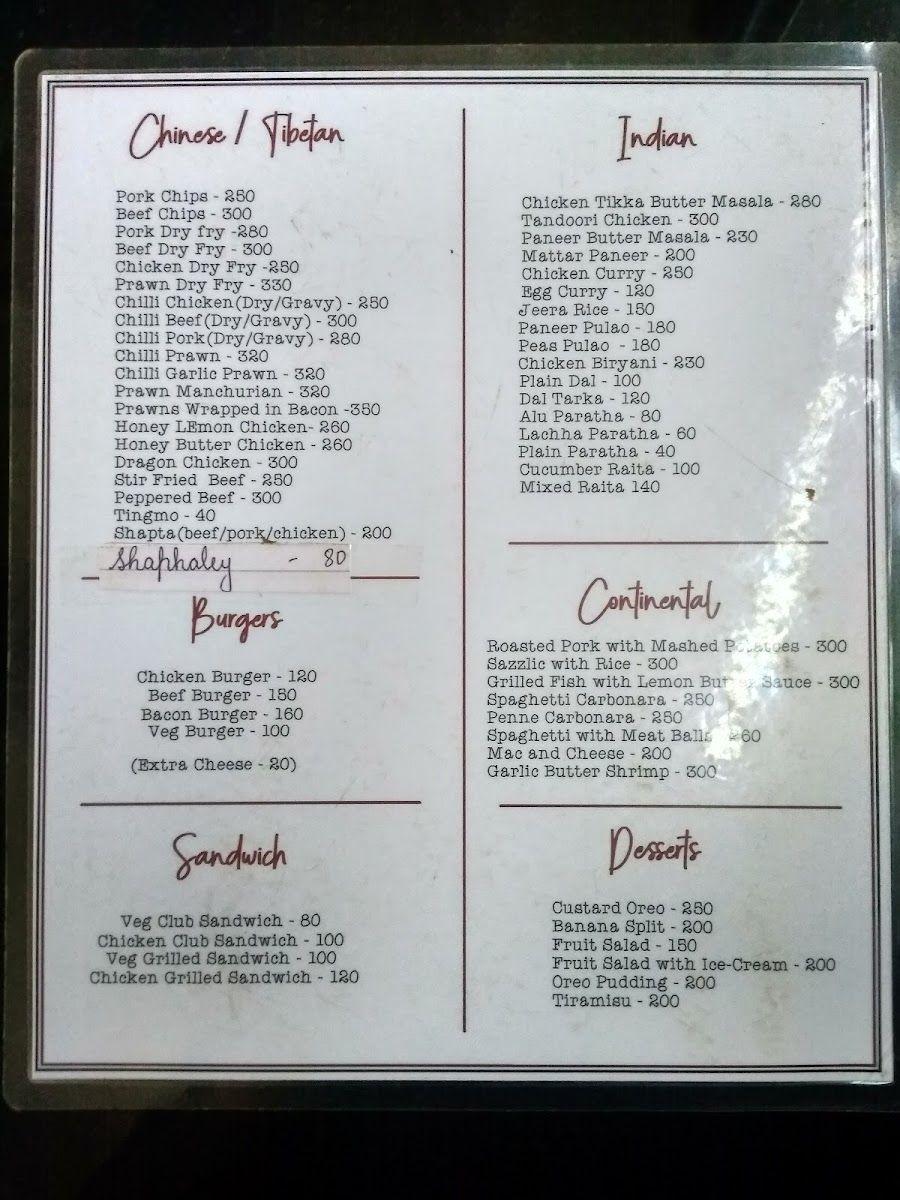 Chinese / Tibetan
Pork Chips - 250
Beef Chips - 300
Pork Dry fry -280
Beef Dry Fry - 300
Chicken Dry Fry -250
Prawn Dry Fry - 330
Chilli Chicken(Dry/Gravy) - 250
Chilli Beef(Dry/Gravy) - 300
Chilli Pork(Dry/Gravy) - 280
Chilli Prawn - 320
Chilli Garlic Prawn - 320
Prawn Manchurian - 320
Prawns Wrapped in Bacon -350
Honey LEmon Chicken- 260
Honey Butter Chicken - 260
Dragon Chicken - 300
Stir Fried Beef - 250
Peppered Beef - 300
Tingmo - 40
Shapta(beef/pork/chicken) - 200
Shaphaley - 80
Burgers
Chicken Burger - 120
Beef Burger - 150
Bacon Burger - 160
Veg Burger - 100
(Extra Cheese - 20)
Sandwich
Veg Club Sandwich - 80
Chicken Club Sandwich - 100
Veg Grilled Sandwich - 100
Chicken Grilled Sandwich - 120
Indian
Chicken Tikka Butter Masala - 280
Tandoori Chicken - 300
Paneer Butter Masala - 230
Mattar Paneer - 200
Chicken Curry - 250
Egg Curry - 120
Jeera Rice - 150
Paneer Pulao - 180
Peas Pulao - 180
Chicken Biryani - 230
Plain Dal - 100
Dal Tarka - 120
Alu Paratha - 80
Lachha Paratha - 60
Plain Paratha - 40
Cucumber Raita - 100
Mixed Raita 140
Continental
Roasted Pork with Mashed Potatoes - 300
Sazzlic with Rice - 300
Grilled Fish with Lemon Butter Sauce - 300
Spaghetti Carbonara - 250
Penne Carbonara - 250
Spaghetti with Meat Balls 260
Mac and Cheese - 200
Garlic Butter Shrimp - 300
Desserts
Custard Oreo - 250
Banana Split - 200
Fruit Salad - 150
Fruit Salad with Ice-Cream - 200
Oreo Pudding - 200
Tiramisu - 200